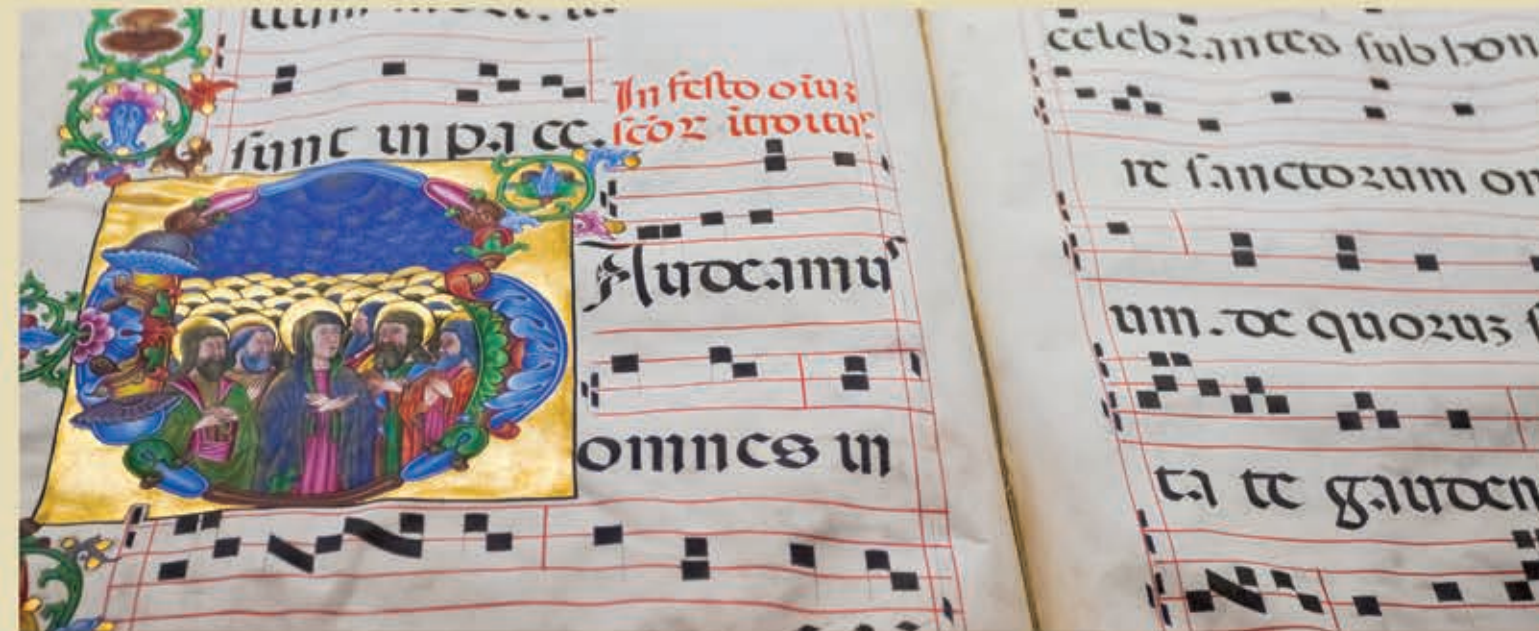 sunt in pace.
In festo oīuz
scōꝝ ītroitus
Audeamus
omnes in
celebrantes sub hon
re sanctorum om
um. de quoruz
ta te gauden